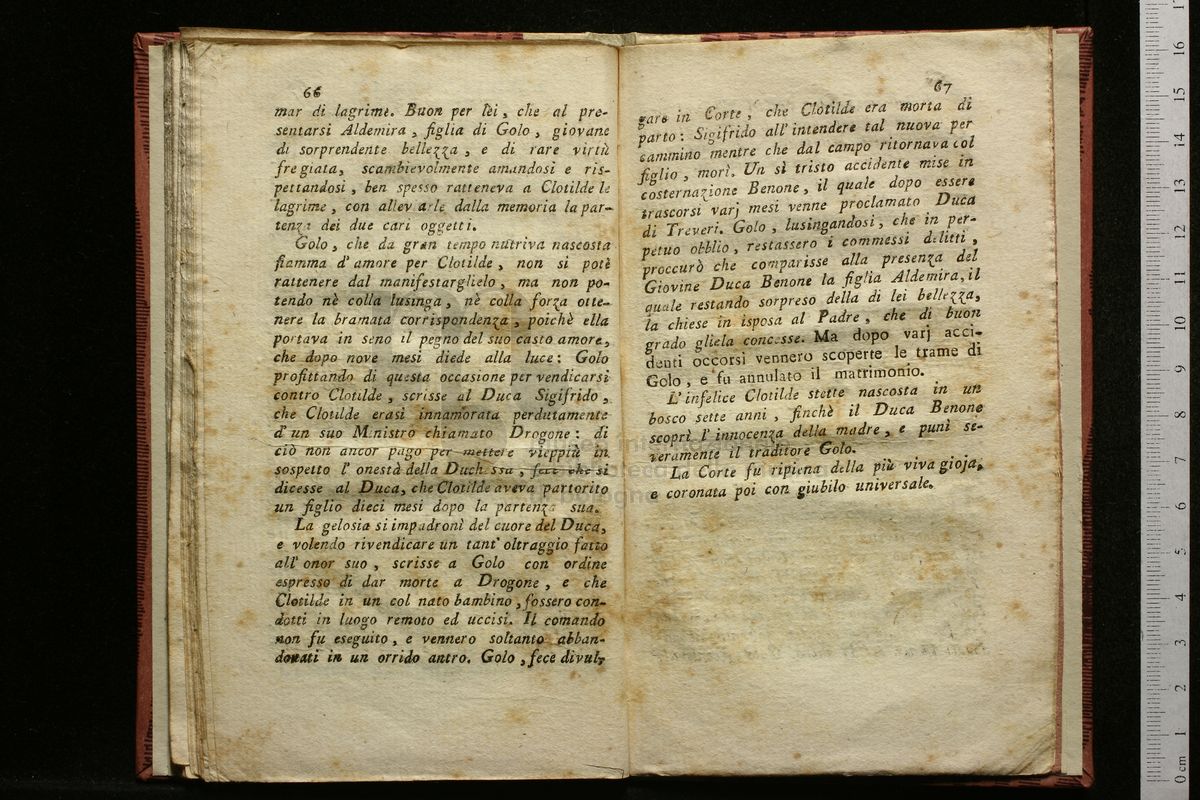 66
mar di lagrime. Buon per lei, che al pre-
sentarsi Aldemira, figlia di Golo, giovane
di sorprendente bellezza, e di rare virtù
fregiata, scambievolmente amandosi e ris-
pettandosi, ben spesso ratteneva a Clotilde le
lagrime, con allevarle dalla memoria la par-
tenza dei due cari oggetti.
Golo, che da gran tempo nutriva nascosta
fiamma d'amore per Clotilde, non si potè
rattenere dal manifestarglielo, ma non po-
tendo nè colla lusinga, nè colla forza otte-
nere la bramata corrispondenza, poichè ella
portava in seno il pegno del suo casto amore,
che dopo nove mesi diede alla luce: Golo
profittando di questa occasione per vendicarsi
contro Clotilde, scrisse al Duca Sigifrido,
che Clotilde erasi innamorata perdutamente
d'un suo Ministro chiamato Drogone: di
ciò non ancor pago per mettere vieppiù in
sospetto l'onestà della Duchessa, fece che si
dicesse al Duca, che Clotilde aveva partorito
un figlio dieci mesi dopo la partenza sua.
La gelosia si impadronì del cuore del Duca,
e volendo rivendicare un tant'oltraggio fatto
all'onor suo, scrisse a Golo con ordine
espresso di dar morte a Drogone, e che
Clotilde in un col nato bambino, fossero con-
dotti in luogo remoto ed uccisi. Il comando
non fu eseguito, e vennero soltanto abban-
donati in un orrido antro. Golo, fece divul-
67
gare in Corte, che Clotilde era morta di
parto: Sigifrido all'intendere tal nuova per
cammino mentre che dal campo ritornava col
figlio, morì. Un sì tristo accidente mise in
costernazione Benone, il quale dopo essere
trascorsi varj mesi venne proclamato Duca
di Treveri. Golo, lusingandosi, che in per-
petuo obblio, restassero i commessi delitti,
proccurò che comparisse alla presenza del
Giovine Duca Benone la figlia Aldemira, il
quale restando sorpreso della di lei bellezza,
la chiese in isposa al Padre, che di buon
grado gliela concesse. Ma dopo varj acci-
denti occorsi vennero scoperte le trame di
Golo, e fu annulato il matrimonio.
L'infelice Clotilde stette nascosta in un
bosco sette anni, finchè il Duca Benone
scoprì l'innocenza della madre, e punì se-
veramente il traditore Golo.
La Corte fu ripiena della più viva gioja,
e coronata poi con giubilo universale.